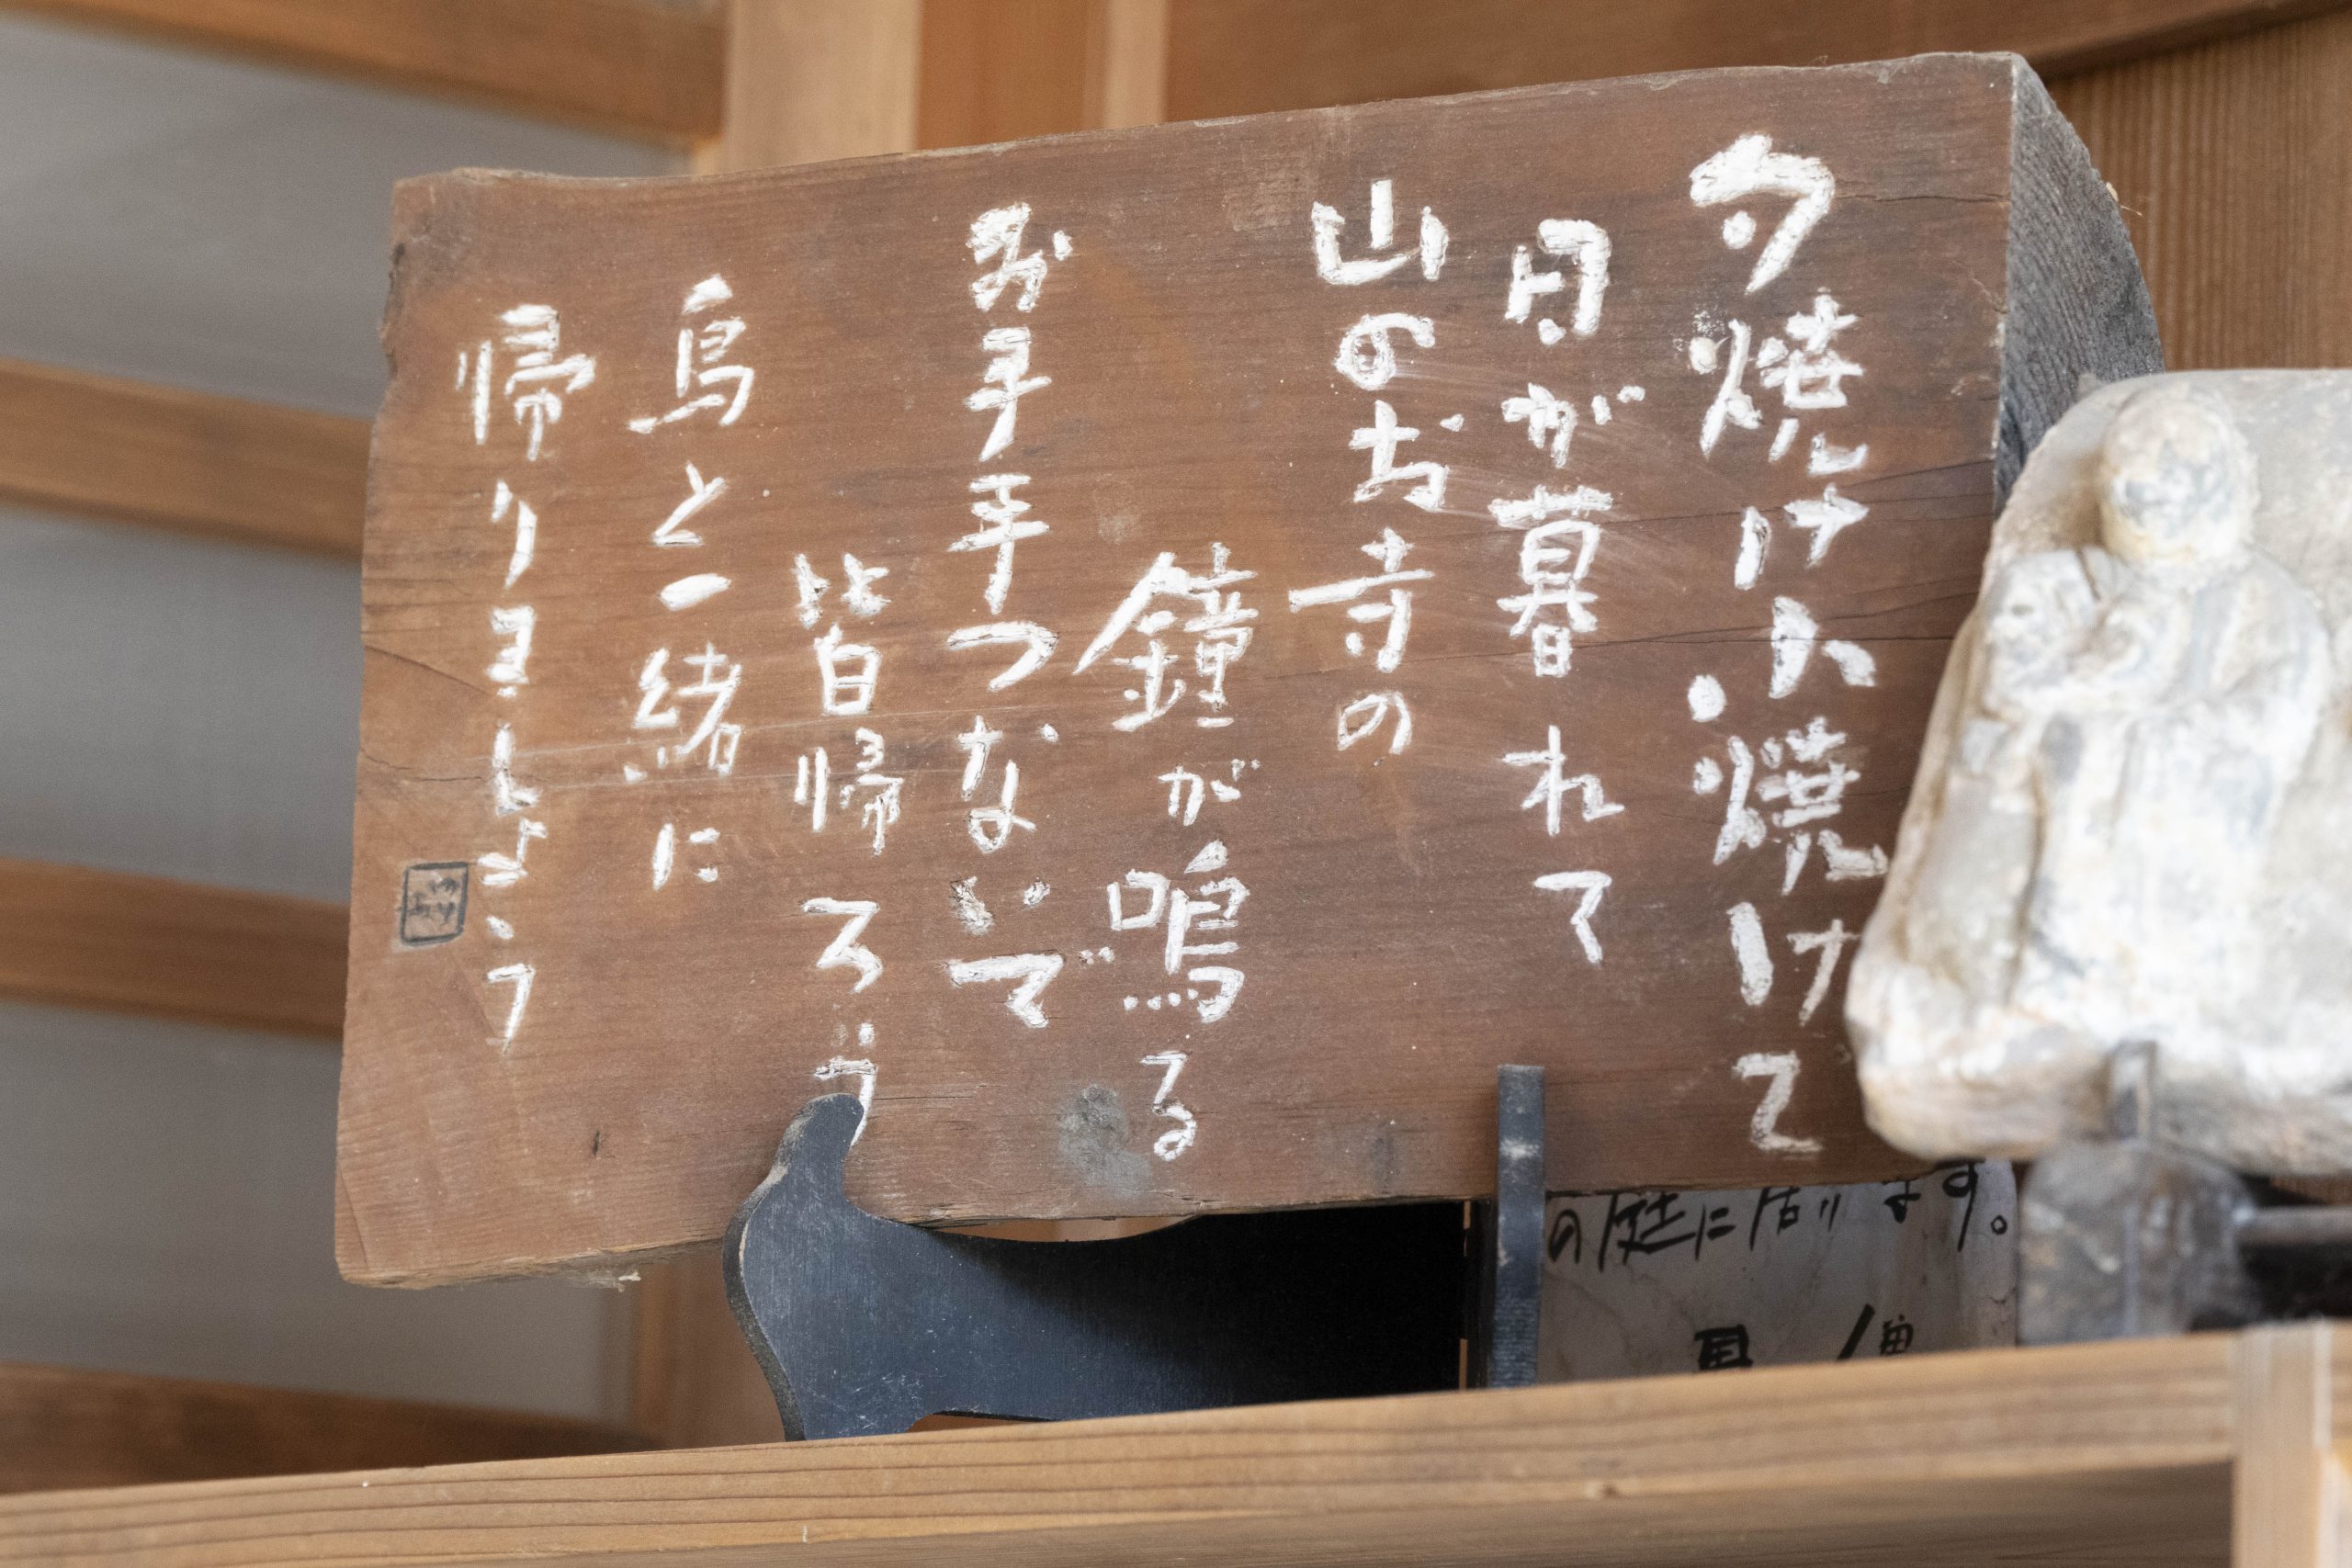 夕焼け小焼けて
日が暮れて
山のお寺の
鐘が鳴る
お手手つないで
皆帰ろう
烏と一緒に
帰りましょう
の庭に居ります。